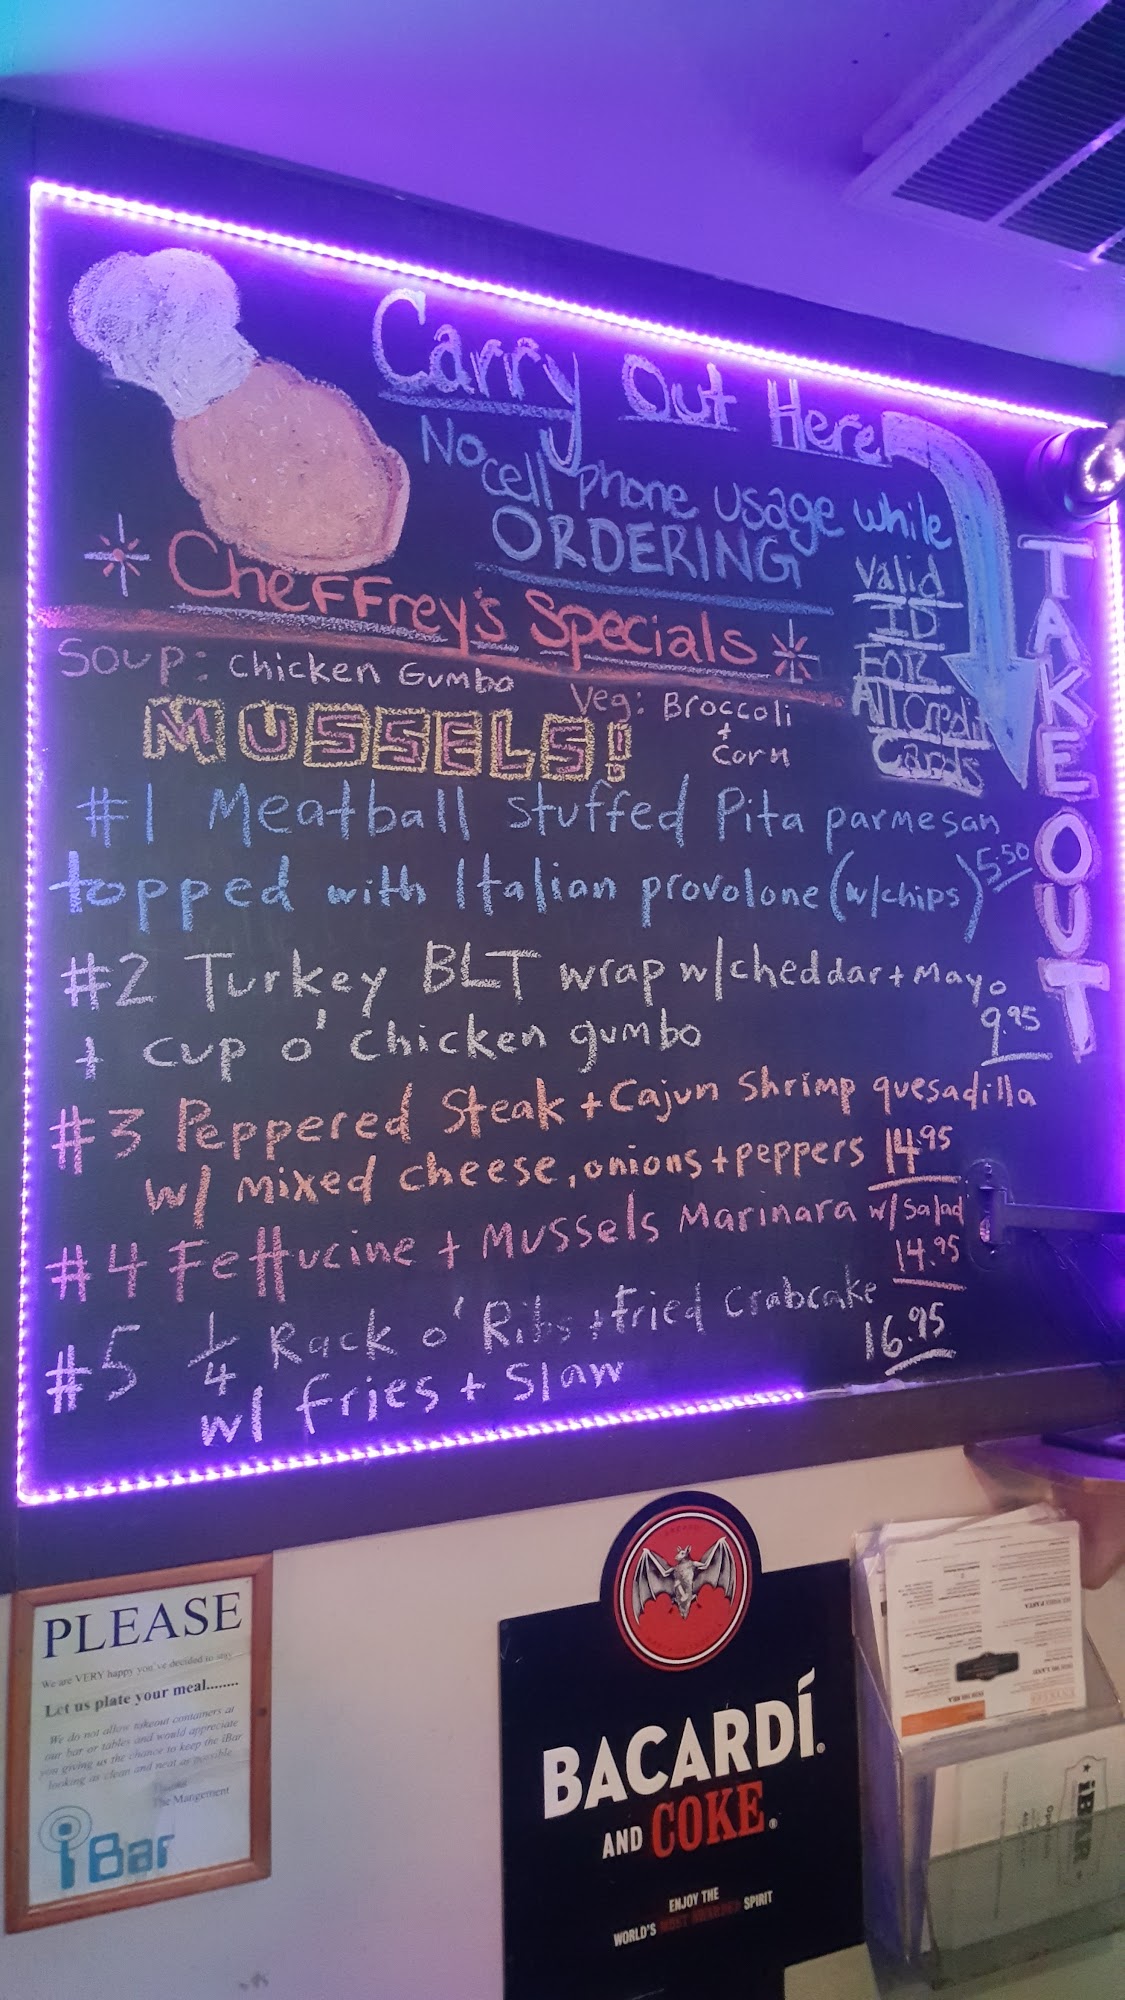 Carry Out Here
No cell phone usage while
ORDERING
Valid
ID
FOR
All Credit
Cards
TAKE OUT
Cheffrey's Specials
Soup: Chicken Gumbo
Veg: Broccoli
+
Corn
MUSSELS!
#1 Meatball stuffed Pita parmesan
topped with Italian provolone (w/chips) 5.50
#2 Turkey BLT wrap w/cheddar + Mayo
+ cup o' chicken gumbo 9.95
#3 Peppered Steak + Cajun Shrimp quesadilla
w/ mixed cheese, onions + peppers 14.95
#4 Fettucine + Mussels Marinara w/ salad
14.95
#5 1/4 Rack o' Ribs + fried Crabcake
w/ fries + Slaw 16.95
PLEASE
We are VERY happy you've decided to stay
Let us plate your meal........
We do not allow takeout containers at
our bar or tables and would appreciate
you giving us the chance to keep the iBar
looking as clean and neat as possible.
The Mangement
iBar
BACARDÍ®
AND COKE®
ENJOY THE
WORLD'S MOST AWARDED SPIRIT
iBAR